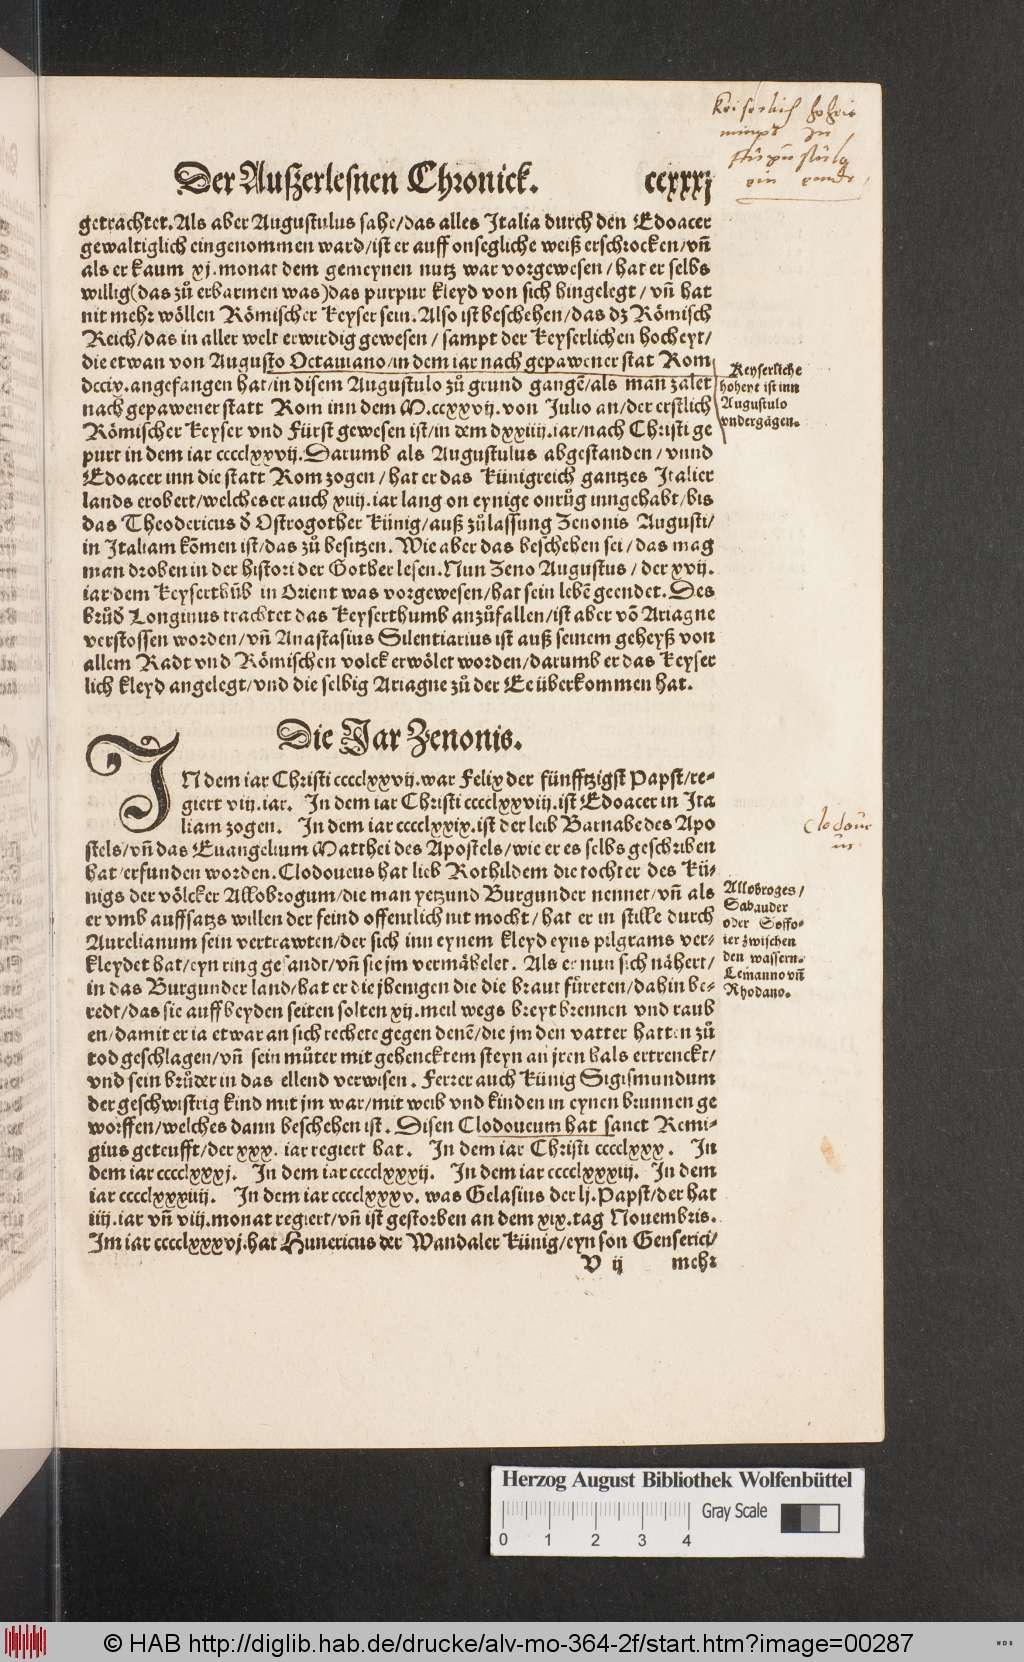 Der Außerlesnen Chronick. ccxxxj
getrachtet. Als aber Augustulus sahe/das alles Italia durch den Edoacer
gewaltiglich eingenommen ward/ist er auff onsegliche weiß erschrocken/vñ
als er kaum xj. monat dem gemeynen nutz war vorgewesen/hat er selbs
willig(das zů erbarmen was)das purpur kleyd von sich hingelegt/vñ hat
nit mehr wöllen Römischer Keyser sein. Also ist beschehen/das dz Römisch
Reich/das in aller welt erwirdig gewesen/sampt der Keyserlichen hocheyt/
die etwan von Augusto Octauiano/in dem iar nach gepawener stat Rom
dccix. angefangen hat/in disem Augustulo zů grund gangē/als man zalet
nach gepawener statt Rom inn dem M.ccxxvij. von Julio an/der erstlich
Römischer Keyser vnd Fürst gewesen ist/in dem dxxiiij. iar/nach Christi ge
purt in dem iar cccclxxvij. Darumb als Augustulus abgestanden/vnnd
Edoacer inn die statt Rom zogen/hat er das Künigreich gantzes Italier
lands erobert/welches er auch xiiij. iar lang on eynige onrůg inngehabt/bis
das Theodericus d̕ Ostrogother Künig/auß zůlassung Zenonis Augusti/
in Italiam kōmen ist/das zů besitzen. Wie aber das beschehen sei/das mag
man droben in der histori der Gother lesen. Nun Zeno Augustus/der xvij.
iar dem Keyserthūb in Orient was vorgewesen/hat sein lebē geendet. Des
brůd̕ Longinus trachtet das Keyserthumb anzůfallen/ist aber vō Ariagne
verstossen worden/vñ Anastasius Silentiarius ist auß seinem geheyß von
allem Radt vnd Römischen volck erwölet worden/darumb er das Keyser
lich kleyd angelegt/vnd die selbig Ariagne zů der Ee überkommen hat.
Keyserliche
hoheyt ist inn
Augustulo
vndergāgen.
Die Jar Zenonis.
IN dem iar Christi cccclxxvij. war Felix der fünfftzigst Papst/re-
giert viij. iar. In dem iar Christi cccclxxviij. ist Edoacer in Ita
liam zogen. In dem iar cccclxxix. ist der leib Barnabe des Apo
stels/vñ das Euangelium Matthei des Apostels/wie er es selbs geschriben
hat/erfunden worden. Clodoueus hat lieb Rothildem die tochter des Kü-
nigs der völcker Allobrogum/die man yetzund Burgunder nennet/vñ als
er vmb auffsatzs willen der feind offentlich nit mocht/hat er in stille durch
Aurelianum sein vertrawten/der sich inn eynem kleyd eyns pilgrams ver-
kleydet hat/eyn ring gesandt/vñ sie jm vermähelet. Als er nun sich nähert/
in das Burgunder land/hat er die jhenigen die die braut füreten/dahin be-
redt/das sie auff beyden seiten solten xij. meil wegs breyt brennen vnd raub
en/damit er ia etwar an sich rechete gegen denē/die jm den vatter hatten zů
tod geschlagen/vñ sein můter mit gehencktem steyn an jren hals ertrenckt/
vnd sein brůder in das ellend verwisen. Ferrer auch Künig Sigismundum
der geschwistrig kind mit jm war/mit weib vnd kinden in eynen brunnen ge
worffen/welches dann beschehen ist. Disen Clodoueum hat sanct Remi-
gius geteufft/der xxx. iar regiert hat. In dem iar Christi cccclxxx. In
dem iar cccclxxxj. In dem iar cccclxxxij. In dem iar cccclxxxiij. In dem
iar cccclxxxiiij. In dem iar cccclxxxv. was Gelasius der lj. Papst/der hat
iiij. iar vñ viij. monat regiert/vñ ist gestorben an dem xix. tag Nouembris.
Im iar cccclxxxvj. hat Hunericus der Wandaler Künig/eyn son Genserici/
V ij mehr
Allobroges/
Sabauder
oder Soffo-
ier zwischen
den wassern.
Lemanno vñ
Rhodano.
Herzog August Bibliothek Wolfenbüttel
Gray Scale
0 1 2 3 4
© HAB http://diglib.hab.de/drucke/alv-mo-364-2f/start.htm?image=00287